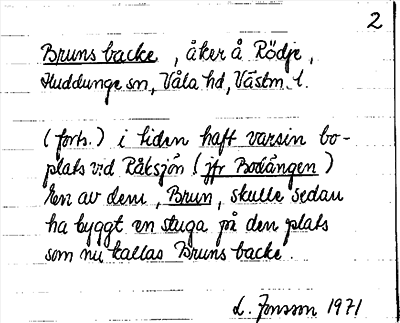 2
Bruns backe, åker å Rödje,
Huddunge sn, Våla hd, Västm. l.
(forts.) i tiden haft varsin bo-
plats vid Råksjön (jfr Bodängen)
En av dem, Brun, skulle sedan
ha byggt en stuga på den plats
som nu kallas Bruns backe.
L. Jonsson 1971